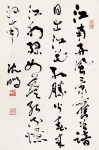 江南好風景舊曾諳
日出江花红勝火春来
江水绿如蓝能不憶
江南 沈鹏